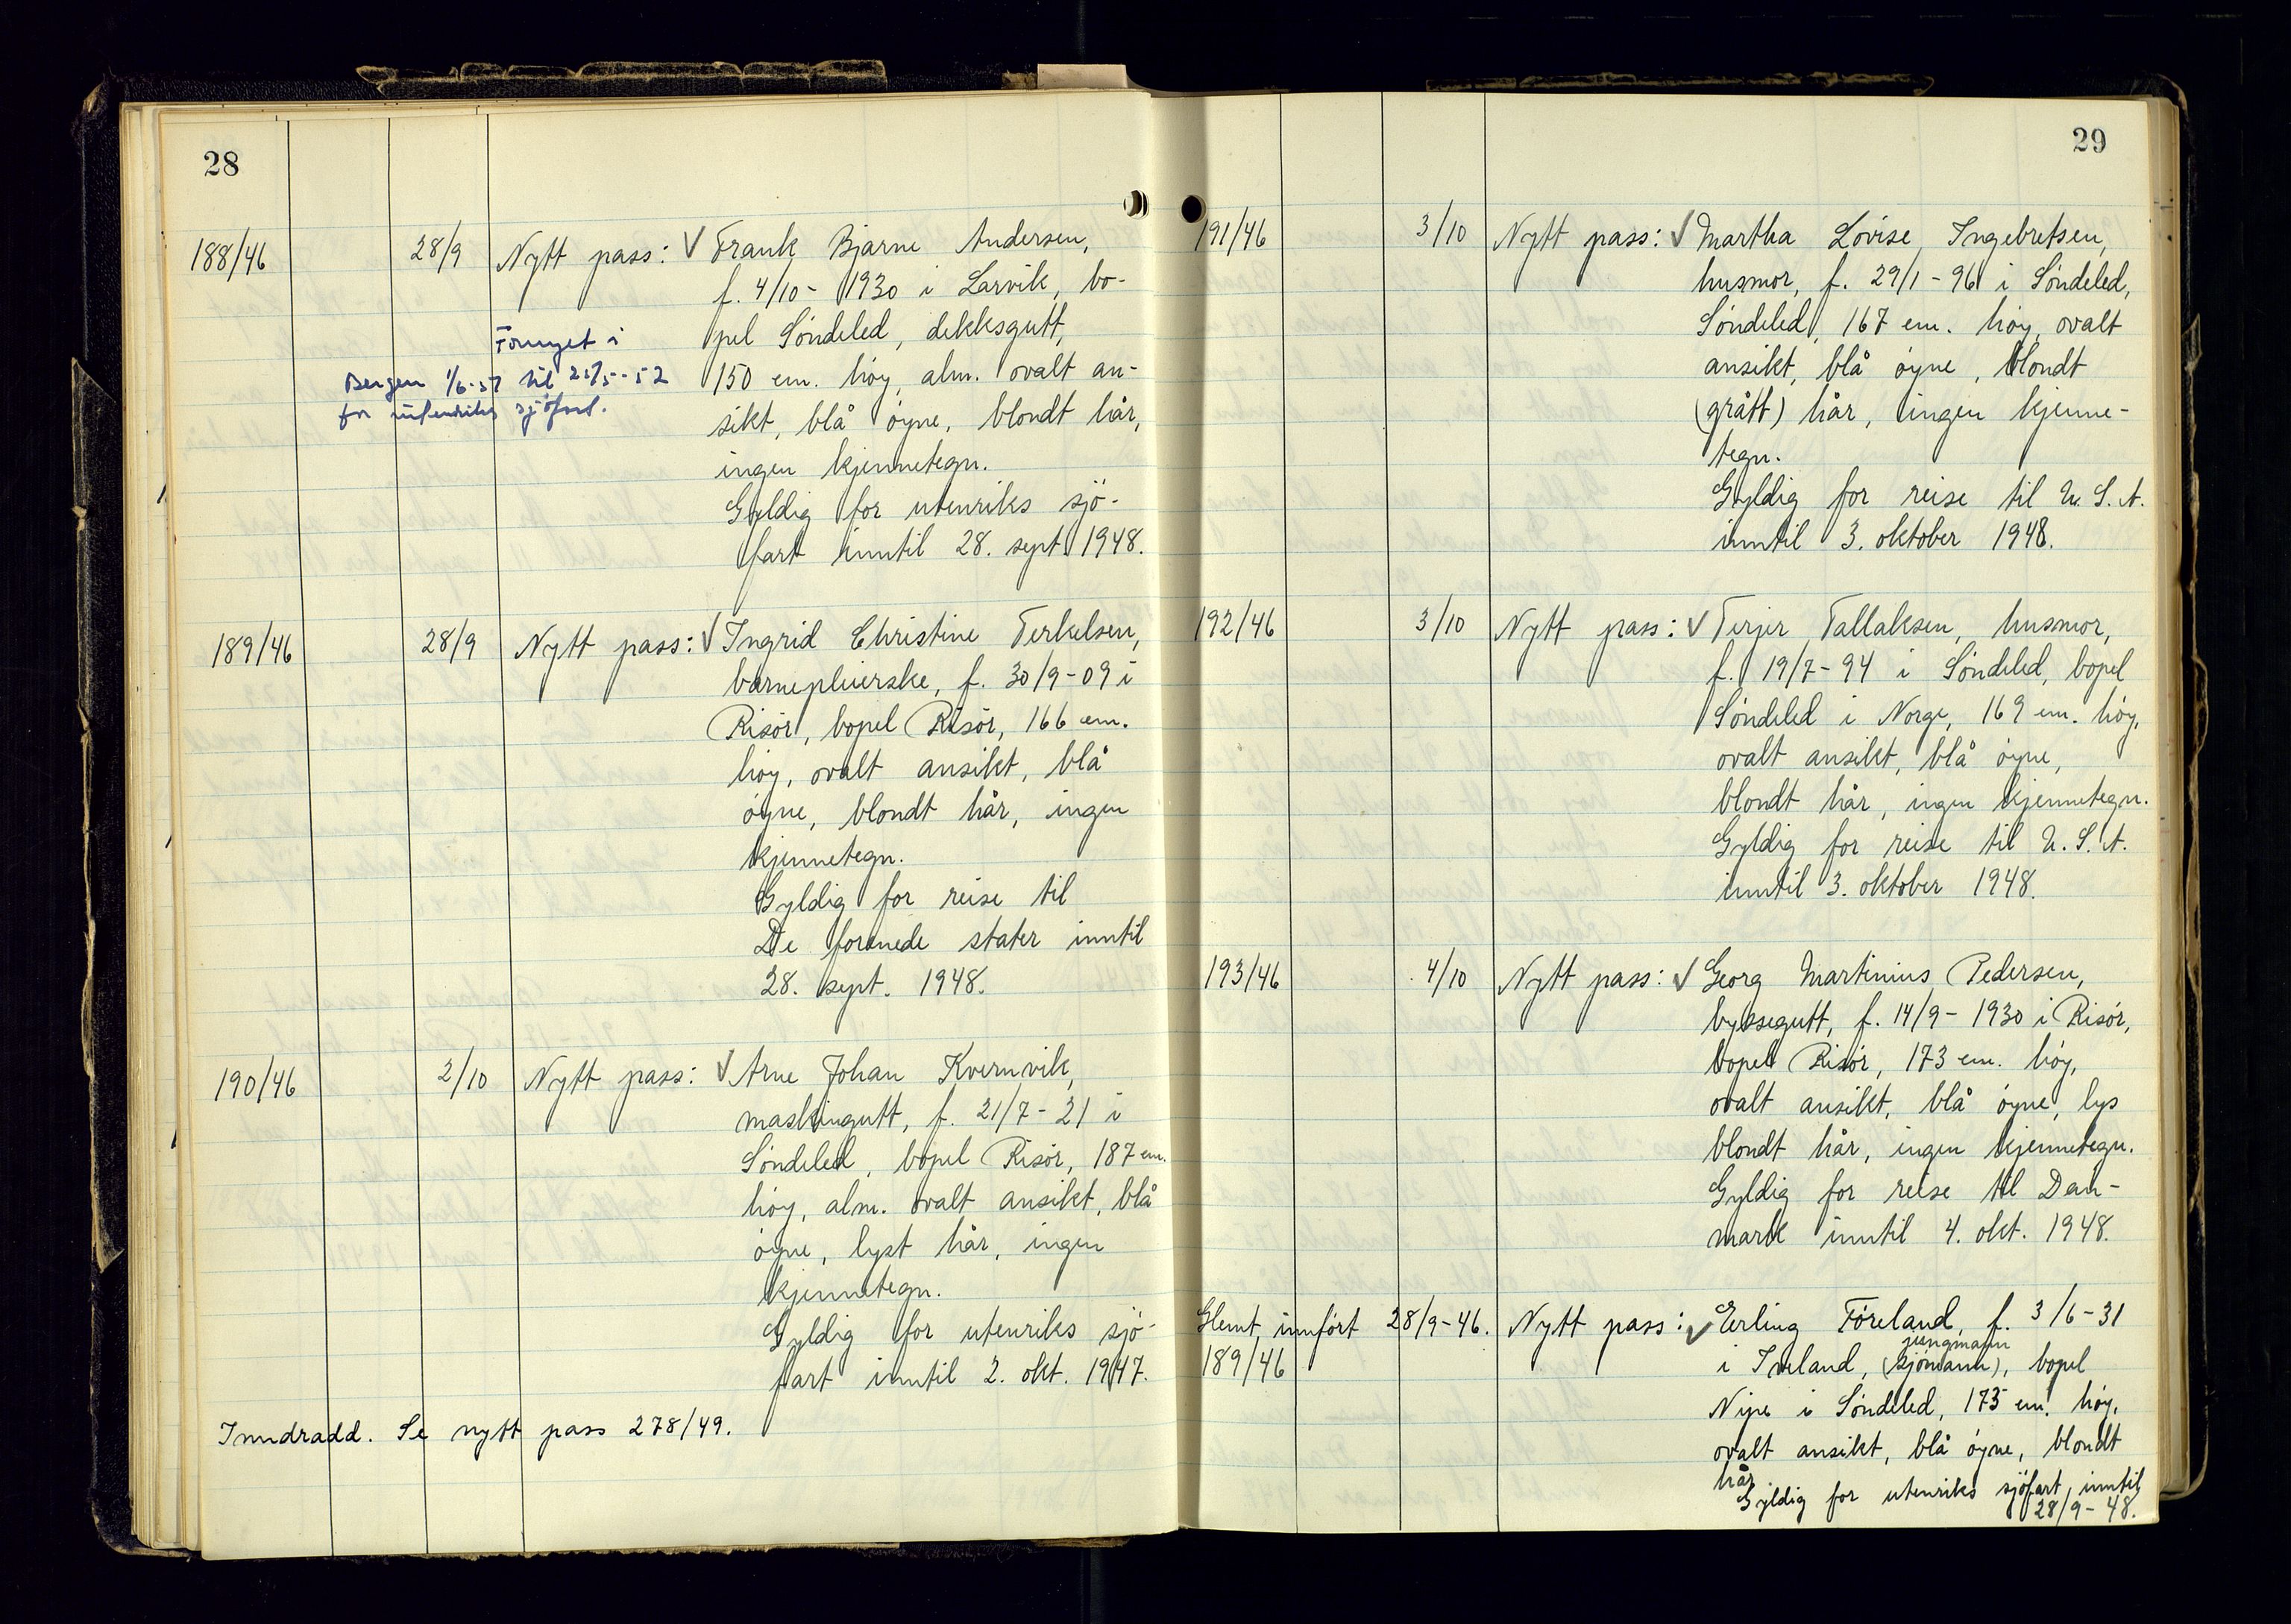 28
188/46 28/9 Nytt pass: √ Frank Bjarne Andersen,
f. 4/10 - 1930 i Larvik, bo-
pel Söndeled, dekksgutt,
150 cm. höy, alm. ovalt an-
sikt, blå öyne, blondt hår,
ingen kjennetegn.
Gyldig for utenriks sjö-
fart inntil 28. sept. 1948.
Fornyet i
Bergen 1/6-51 til 25/5-52
for utenriks sjöfart.
189/46 28/9 Nytt pass: √ Ingrid Christine Terkelsen,
barnepleierske, f. 30/9-09 i
Risör, bopel Risör, 166 cm.
höy, ovalt ansikt, blå
öyne, blondt hår, ingen
kjennetegn.
Gyldig for reise til
De forenede stater inntil
28. sept. 1948.
190/46 2/10 Nytt pass: √ Arne Johan Kvernvik,
maskingutt, f. 21/7-21 i
Söndeled, bopel Risör, 187 cm.
höy, alm. ovalt ansikt, blå
öyne, lyst hår, ingen
kjennetegn.
Gyldig for utenriks sjö-
fart inntil 2. okt. 1947.
Inndradd. Se nytt pass 278/49.
29
191/46 3/10 Nytt pass: √ Martha Lovise Ingebretsen,
husmor, f. 29/1-96 i Söndeled,
Söndeled, 167 cm. höy, ovalt
ansikt, blå öyne, blondt
(grått) hår, ingen kjenne-
tegn.
Gyldig for reise til U.S.A.
inntil 3. oktober 1948.
192/46 3/10 Nytt pass: √ Tallaksen, husmor,
f. 19/7-94 i Söndeled, bopel
Söndeled i Norge, 169 cm. höy,
ovalt ansikt, blå öyne,
blondt hår, ingen kjennetegn.
Gyldig for reise til U.S.A.
inntil 3. oktober 1948.
193/46 4/10 Nytt pass: √ Georg Martinius Pedersen,
byssegutt, f. 14/9-1930 i Risör,
bopel Risör, 173 cm. höy,
ovalt ansikt, blå öyne, lys
blondt hår, ingen kjennetegn.
Gyldig for reise til Dan-
mark inntil 4. okt. 1948.
Glemt innfört 28/9-46. Nytt pass: √ Erling Föreland, f. 3/6-31
189/46
jungmann
i Iveland, (sjömann), bopel
Nipe i Söndeled, 175 cm. höy,
ovalt ansikt, blå öyne, blondt
hår
Gyldig for utenriks sjöfart inntil
28/9-48.